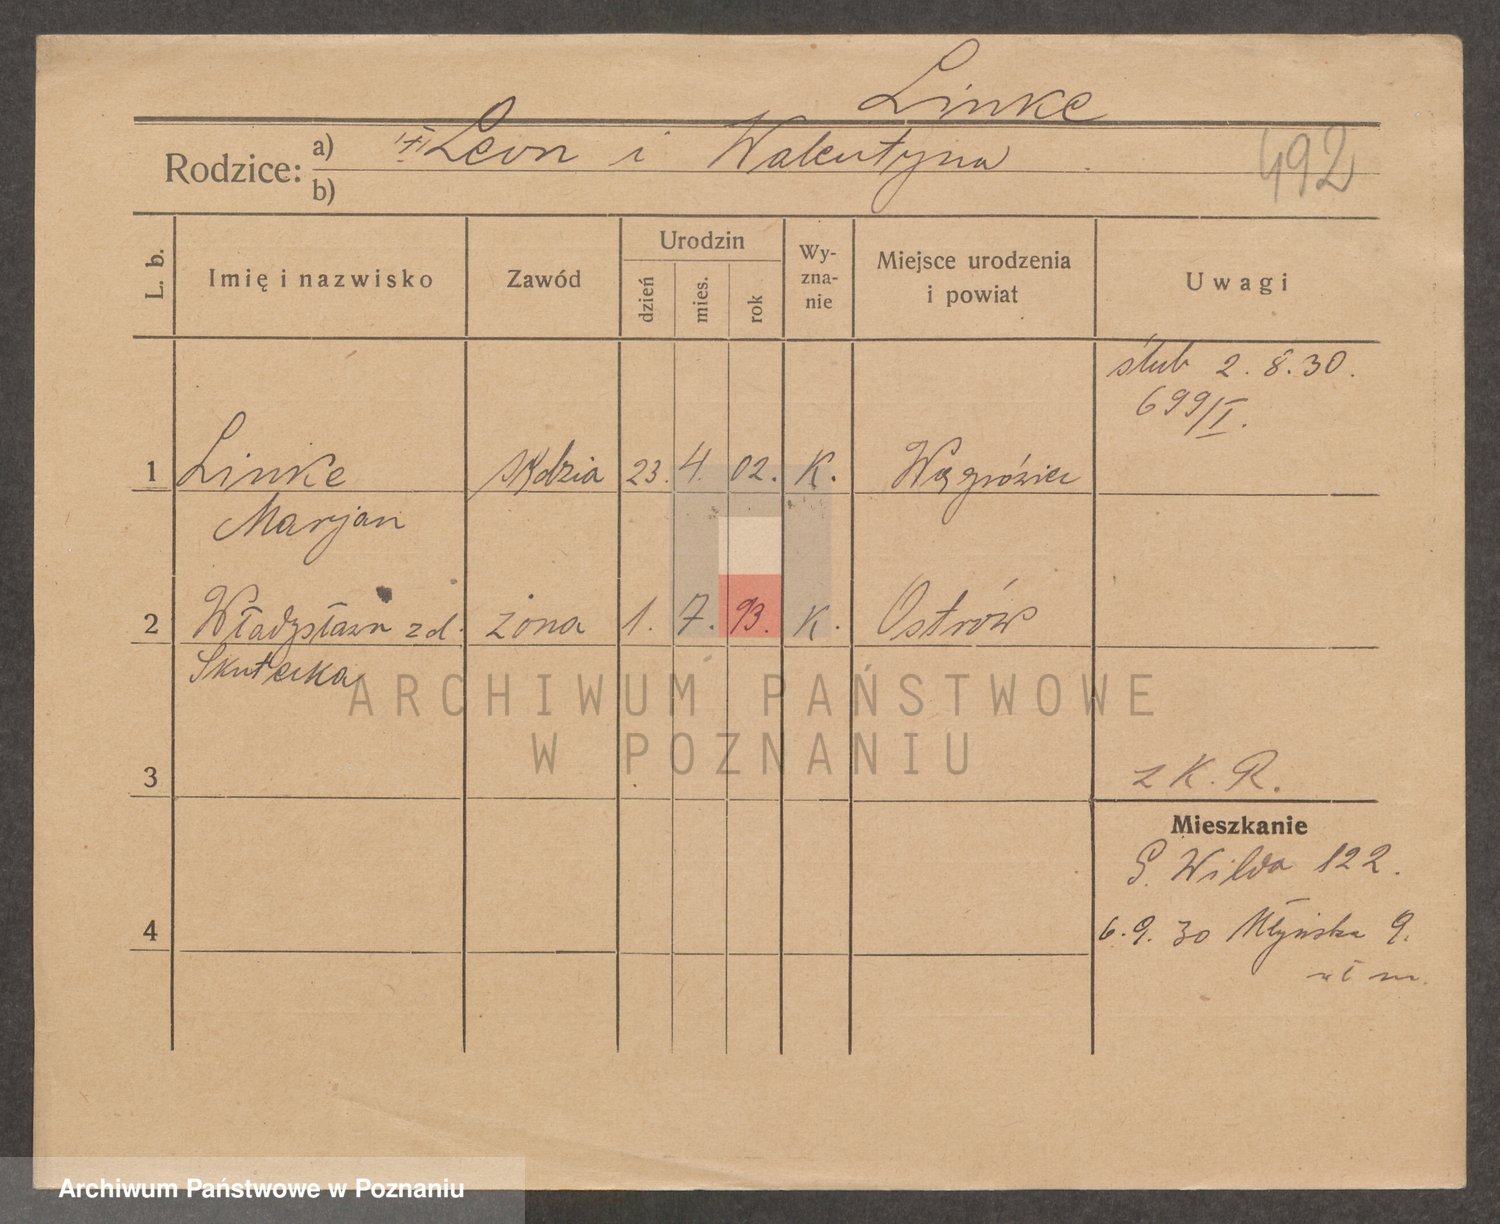 Linke
Rodzice: a) Leon i Walentyna 492
b)
L. b. Imię i nazwisko Zawód Urodzin dzień mies. rok Wy-zna-nie Miejsce urodzenia i powiat Uwagi
ślub 2. 8. 30.
699/I.
1 Linke sędzia 23. 4. 02. K. Wągrówiec
Marjan
2 Władysława z d. żona 1. 7. 93. K. Ostrów
Skutecka
ARCHIWUM PAŃSTWOWE
W POZNANIU
3 z K. R.
Mieszkanie
G. Wilda 122.
4 6. 9. 30 Młyńska 9.
Archiwum Państwowe w Poznaniu